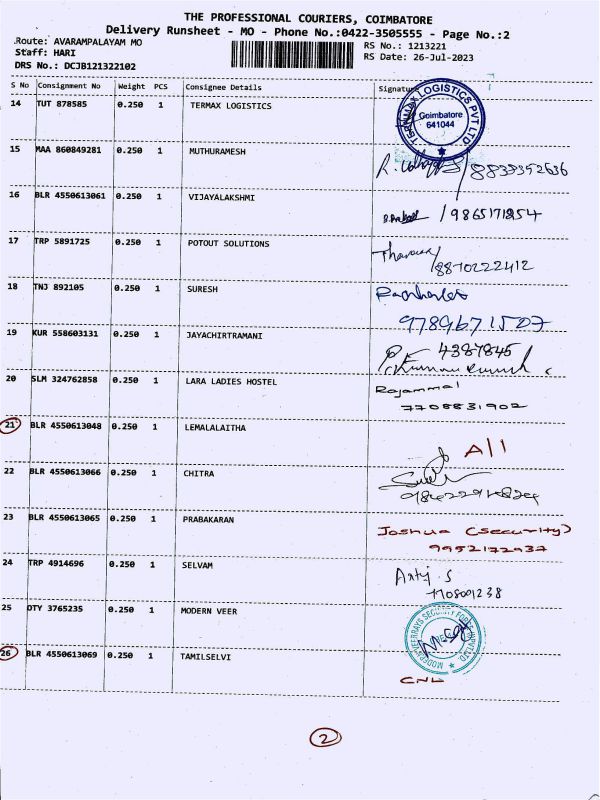 THE PROFESSIONAL COURIERS, COIMBATORE
Delivery Runsheet - MO - Phone No.:0422-3505555 - Page No.:2
Route: AVARAMPALAYAM MO
RS No.: 1213221
Staff: HARI
RS Date: 26-Jul-2023
DRS No.: DCJB121322102
S No Consignment No Weight PCS Consignee Details Signature
14 TUT 878585 0.250 1 TERMAX LOGISTICS
TERMAX LOGISTICS PVT LTD
Coimbatore
641044
15 MAA 860849281 0.250 1 MUTHURAMESH
R. /8839352636
16 BLR 4550613061 0.250 1 VIJAYALAKSHMI
17 TRP 5891725 0.250 1 POTOUT SOLUTIONS
/8870222412
18 TNJ 892105 0.250 1 SURESH
9789671507
19 KUR 558603131 0.250 1 JAYACHIRTRAMANI
4387845
20 SLM 324762858 0.250 1 LARA LADIES HOSTEL
Rajammal
7708831902
21 BLR 4550613048 0.250 1 LEMALALAITHA
A/1
22 BLR 4550613066 0.250 1 CHITRA
23 BLR 4550613065 0.250 1 PRABAKARAN
Joshua (security)
9952172937
24 TRP 4914696 0.250 1 SELVAM
25 OTY 3765235 0.250 1 MODERN VEER
26 BLR 4550613069 0.250 1 TAMILSELVI
CNL
2